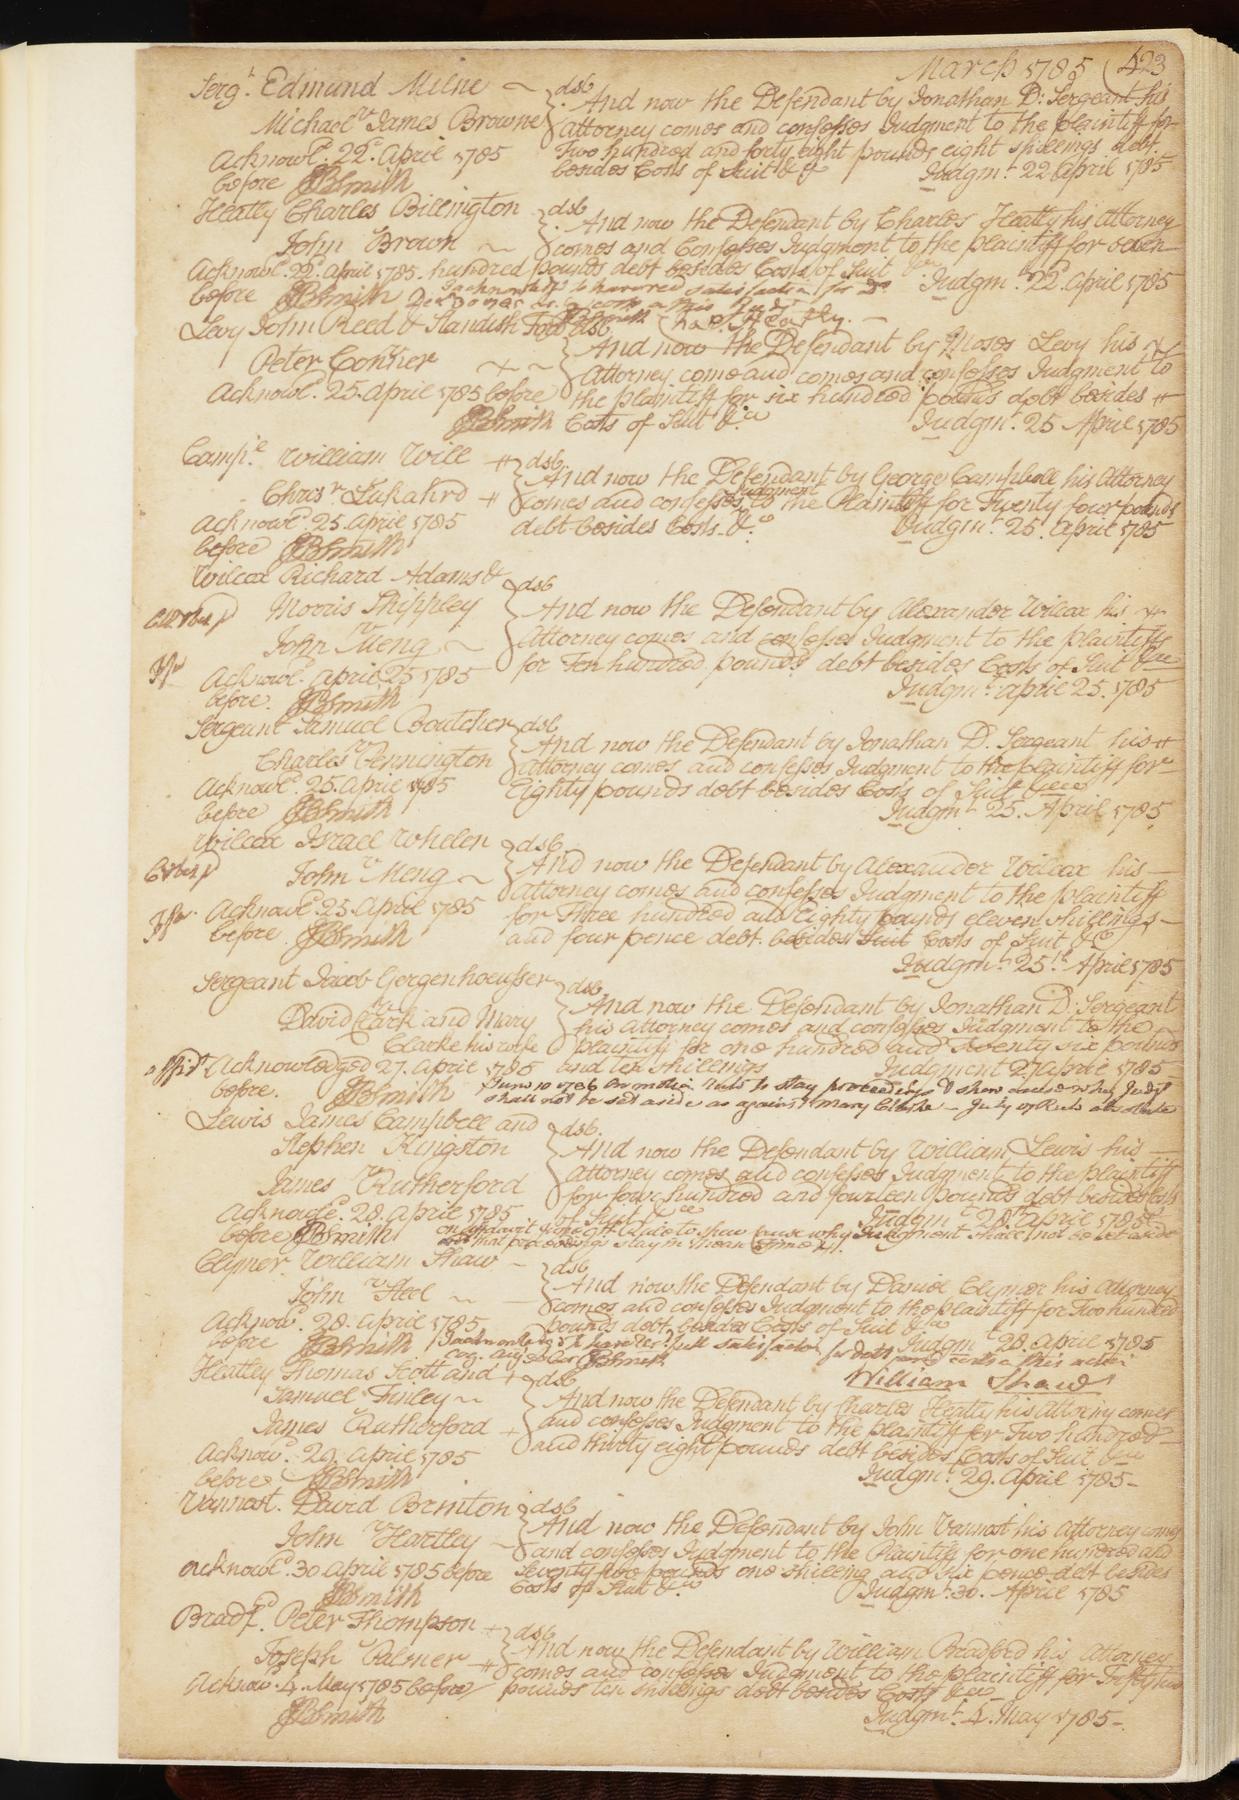 March 1785 (423
Serg.t Edmund Milne ~ } dsb
v And now the Defendant by Jonathan D: Sergeant his
Michael & James Browne attorney comes and confesses Judgment to the plaintiff for
Acknowl.d 22.d April 1785 Two hundred and forty eight pounds eight shillings debt.
before JBSmith besides Costs of Suit &c Judgm.t 22 April 1785
Heatly Charles Bilington } dsb
v And now the Defendant by Charles Heatly his Attorney
John Brown ~ comes and Confesses Judgment to the plaintiff for seven
Acknowl.d 22.d April 1785. hundred pounds debt besides Costs of Suit &c Judgm.t 22.d April 1785
before JBSmith I acknowledge to have rec.d satisfaction for
Cha.s Heatly.
Levy John Reed & Standish Ford dsb.
v And now the Defendant by Moses Levy his
Peter Corkier ~ ~ ~ Attorney come and comes and confesses Judgment to
Acknowl.d 25. April 1785 before the plaintiff for six hundred pounds debt besides
JBSmith Costs of Suit &.c Judgm.t 25 April 1785
Camp.l William Will } dsb
v And now the Defendant by George Campbell his Attorney
Chris.r comes and confesses Judgment to the Plaintiff for Twenty four pounds
Acknowl.d 25. April 1785 debt besides Costs. &.c Judgm.t 25. April 1785
before JBSmith
Wilcox Richard Adams & } dsb
Morris Shippley And now the Defendant by Alexander Wilcox his
v
John Meng ~ Attorney comes and confesses Judgment to the plaintiffs
Acknowl.d April 25 1785 for Ten hundred pounds debt besides Costs of Suit &c
before. JBSmith Judgm.t April 25. 1785
Sergeant Samuel Boutcher } dsb
v And now the Defendant by Jonathan D. Sergeant his
Charles Pennington Attorney comes and confesses Judgment to the plaintiff for
Acknowl.d 25. April 1785 Eighty pounds debt besides Costs of Suit &c
before JBSmith Judgm.t 25. April 1785
Wilcox Israel Whelen } dsb
v And now the Defendant by Alexander Wilcox his
John Meng ~ attorney comes and confesses Judgment to the plaintiff
Acknowl.d 25. April 1785 for Three hundred and Eighty pounds eleven shillings
before JBSmith and four pence debt. besides Suit Costs of Suit &c
Judgm.t 25.th April 1785
Sergeant Jacob Gergenhoeusser } dsb
v And now the Defendant by Jonathan D. Sergeant
David Clark and Mary his Attorney comes and confesses Judgment to the
Clarke his wife plaintiff for one hundred and Twenty six pounds
Acknowledged 27. April 1785 and ten shillings Judgment 27 April 1785
before. JBSmith June 10 1786 On motion Rule to stay proceedings & shew cause why Judg.t
shall not be set aside as against Mary Clarke July
Lewis James Campbell and } dsb.
Stephen Kingston And now the Defendant by William Lewis his
v attorney comes and confesses Judgment to the plaintiff
James Rutherford for four hundred and fourteen pounds debt besides Costs
Acknowl.d 28. April 1785 of Suit &c Judgm.t 28. April 1785
before JBSmith on affidavit Rule to shew cause why Judgment shall not be set aside
and that proceedings stay in mean time
Clymer William Shaw ~ } dsb
v And now the Defendant by Daniel Clymer his Attorney
John Steel ~ comes and confesses Judgment to the plaintiff for Two hundred
Acknow.d 28. April 1785 pounds debt besides Costs of Suit &c
before JBSmith Judgm.t 28. April 1785
I acknowledge to have rec.d full satisfaction for debt and costs in this action
William Shaw
Heatley Thomas Scott and } dsb
Samuel Finley ~ And now the Defendant by Charles Heatly his Attorney comes
v and confesses Judgment to the plaintiff for Two hundred
James Rutherford and thirty eight pounds debt besides Costs of Suit &c
Acknow.d 29. April 1785 Judgm.t 29. April 1785 -
before JBSmith
Vannost. David Brinton } dsb
v And now the Defendant by John Vannost his Attorney comes
John Hartley and confesses Judgment to the Plaintiff for one hundred and
Acknowl.d 30 April 1785 before Seventy five pounds one shilling and six pence debt besides
JBSmith Costs of Suit &c Judgm.t 30. April 1785
Bradf.d Peter Thompson } dsb
v And now the Defendant by William Bradford his Attorney
Joseph Palmer comes and confesses Judgment to the plaintiff for Fifty two
Acknow.d 4. May 1785 before pounds ten shillings debt besides Costs &c
JBSmith Judgm.t 4. May 1785 -